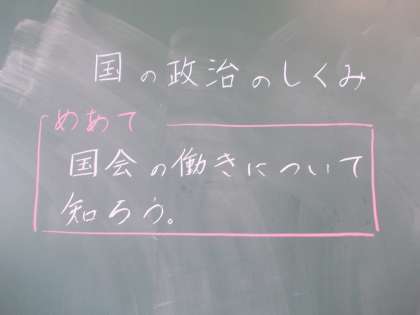 国の政治のしくみ
めあて
国会の働きについて
知ろう。